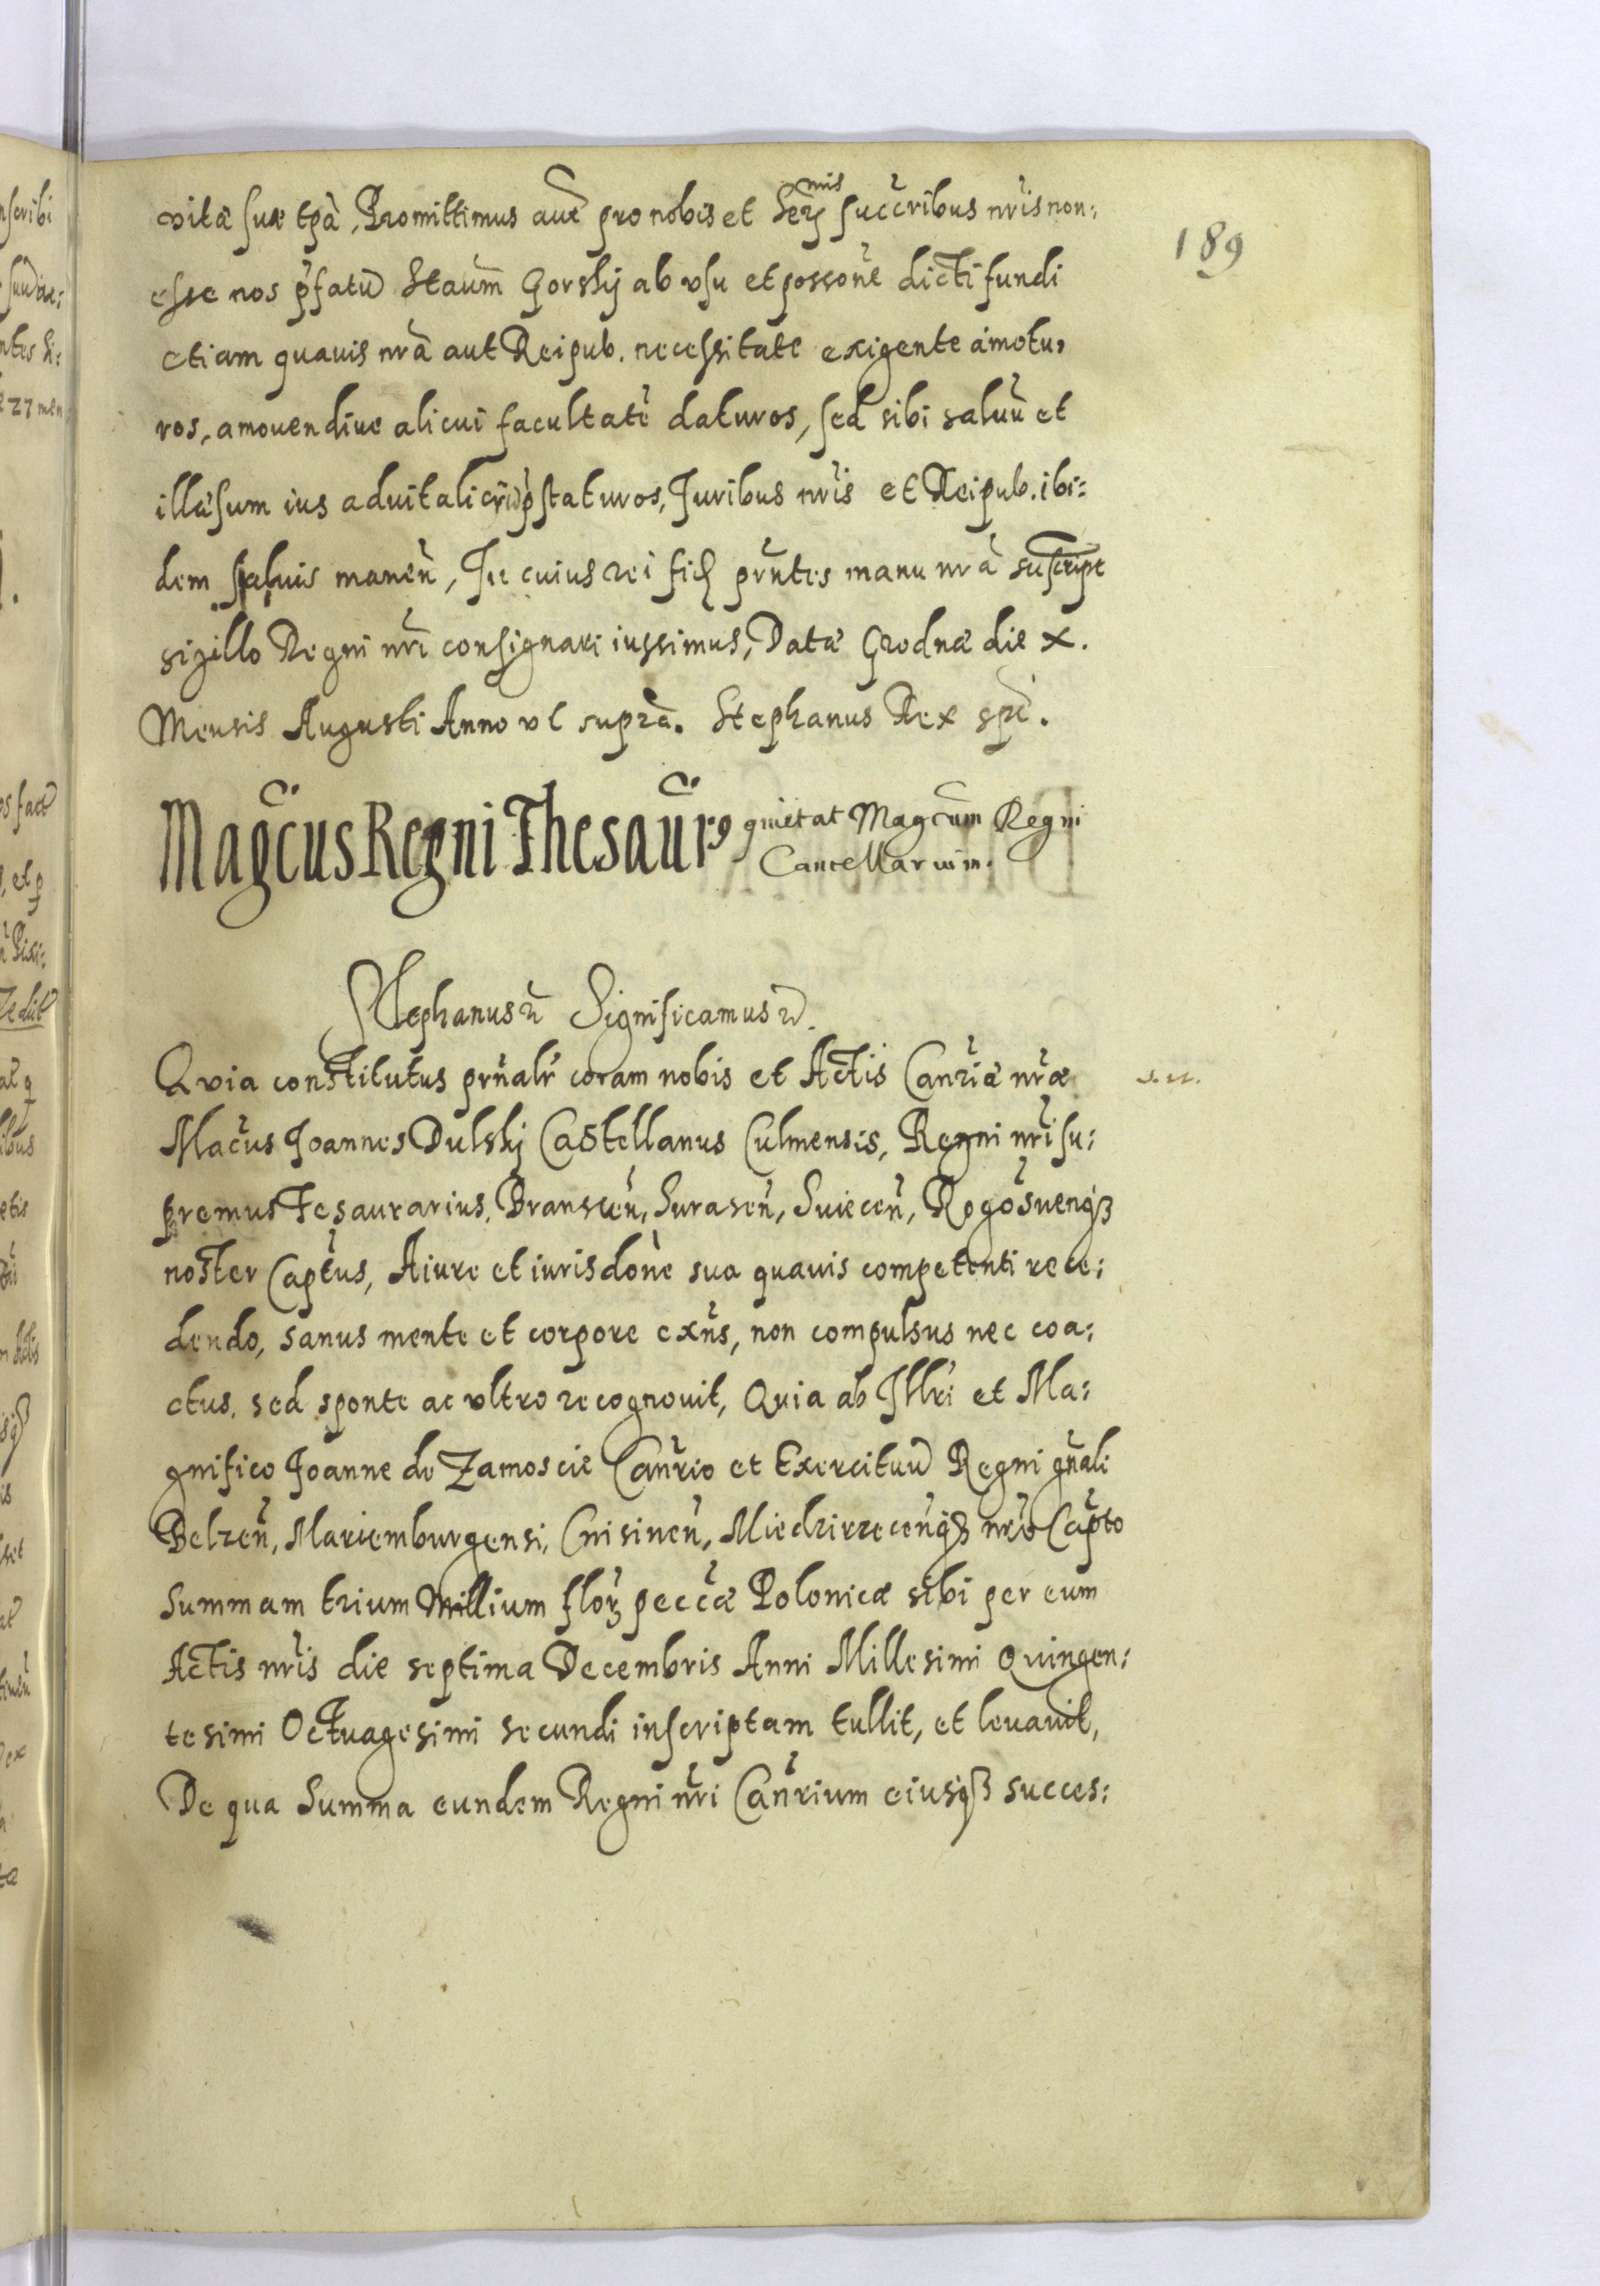 189
vitæ suæ tpã, Promittimus aut pro nobis et Ser mis succribus nris non:
esse nos pfatũ Staum Gorskij ab vsu et possone dicti fundi
etiam quauis nrã aut Reipub. necessitate exigente amotu,
ros, amouendiue alicui facultatẽ daturos, sed sibi saluũ et
illæsum ius aduitaliciũ pstaturos, Juribus nris et Reipub. ibi:
dem saluis manẽn, In cuius rei fid prñtes manu nrã suscript
sigillo Regni nri consignari iussimus, Datæ Grodnæ die X.
Mensis Augusti Anno vt supra. Stephanus Rex spt.
Magcus Regni Thesaur9 quietat Magcum Regni
Cancellarium.
Stephanus Significamus
Quia constitutus prñalr coram nobis et Actis Canriæ nræ
Macus Joannes Dulskj Castellanus Culmensis, Regni nri su:
premus Tesaurarius, Branscen, Surasen, Suiecen, Rogosnenqꝫ
noster Captus, A iure et iurisdone sua quauis competenti rece:
dendo, sanus mente et corpore exñs, non compulsus nec coa:
ctus, sed sponte ac vltro recognouit, Quia ab Jllri et Ma:
gnifico Joanne de Zamoscie Canrio et Exercituũ Regni gñali
Belzen, Mariemburgensi, Cnisinen, Miedzirzecenqꝫ nro Capto
Summam trium Millium flor peccæ Polonicæ sibi per eum
Actis nris die septima Decembris Anni Millesimi Quingen:
tesimi Octuagesimi secundi inscriptam tullit, et leuauit,
De qua Summa eundem Regni nri Canrium eiusqꝫ succes: